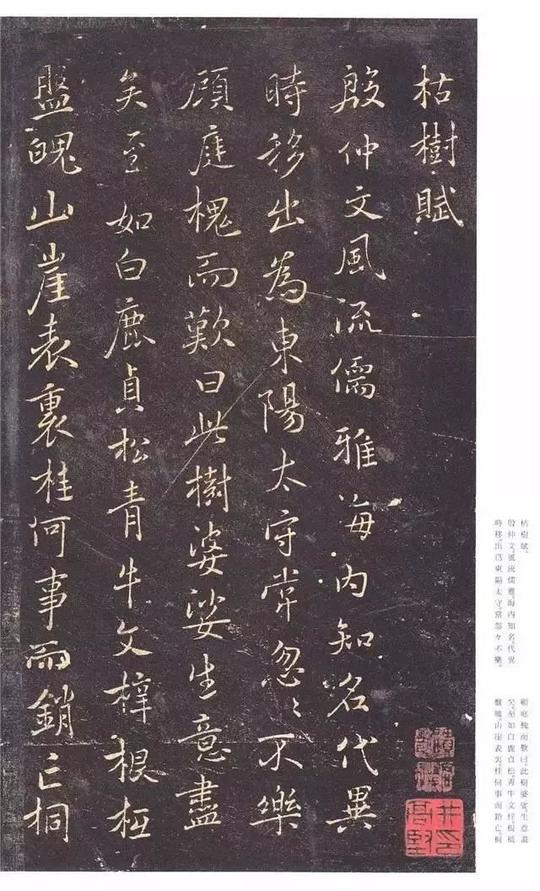 枯樹賦
殷仲文風流儒雅海内知名代異
時移出為東陽太守常忽〻不樂
顧庭槐而歎曰此樹婆娑生意盡
矣至如白鹿貞松青牛文梓根柢
盤魄山崖表裏桂何事而銷亡桐
枯樹賦。
殷仲文風流儒雅。海内知名。代異
時移。出為東陽太守。常忽々不樂。
顧庭槐而歎曰。此樹婆娑。生意盡
矣。至如白鹿貞松。青牛文梓。根柢
盤魄。山崖表裏。桂何事而銷亡。桐